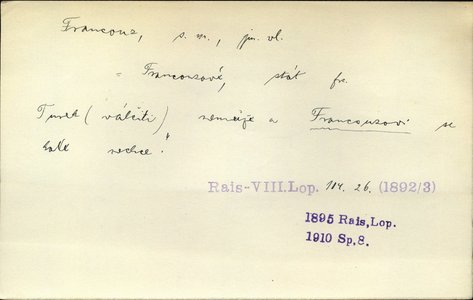 Francouz, s. m., jm. vl.
= Francouzové, stát fr.
Turek (válčiti) nemůže a Francouzovi se
také nechce.
Rais-VIII.Lop. 104. 26. (1892/3)
1895 Rais,Lop.
1910 Sp,8.